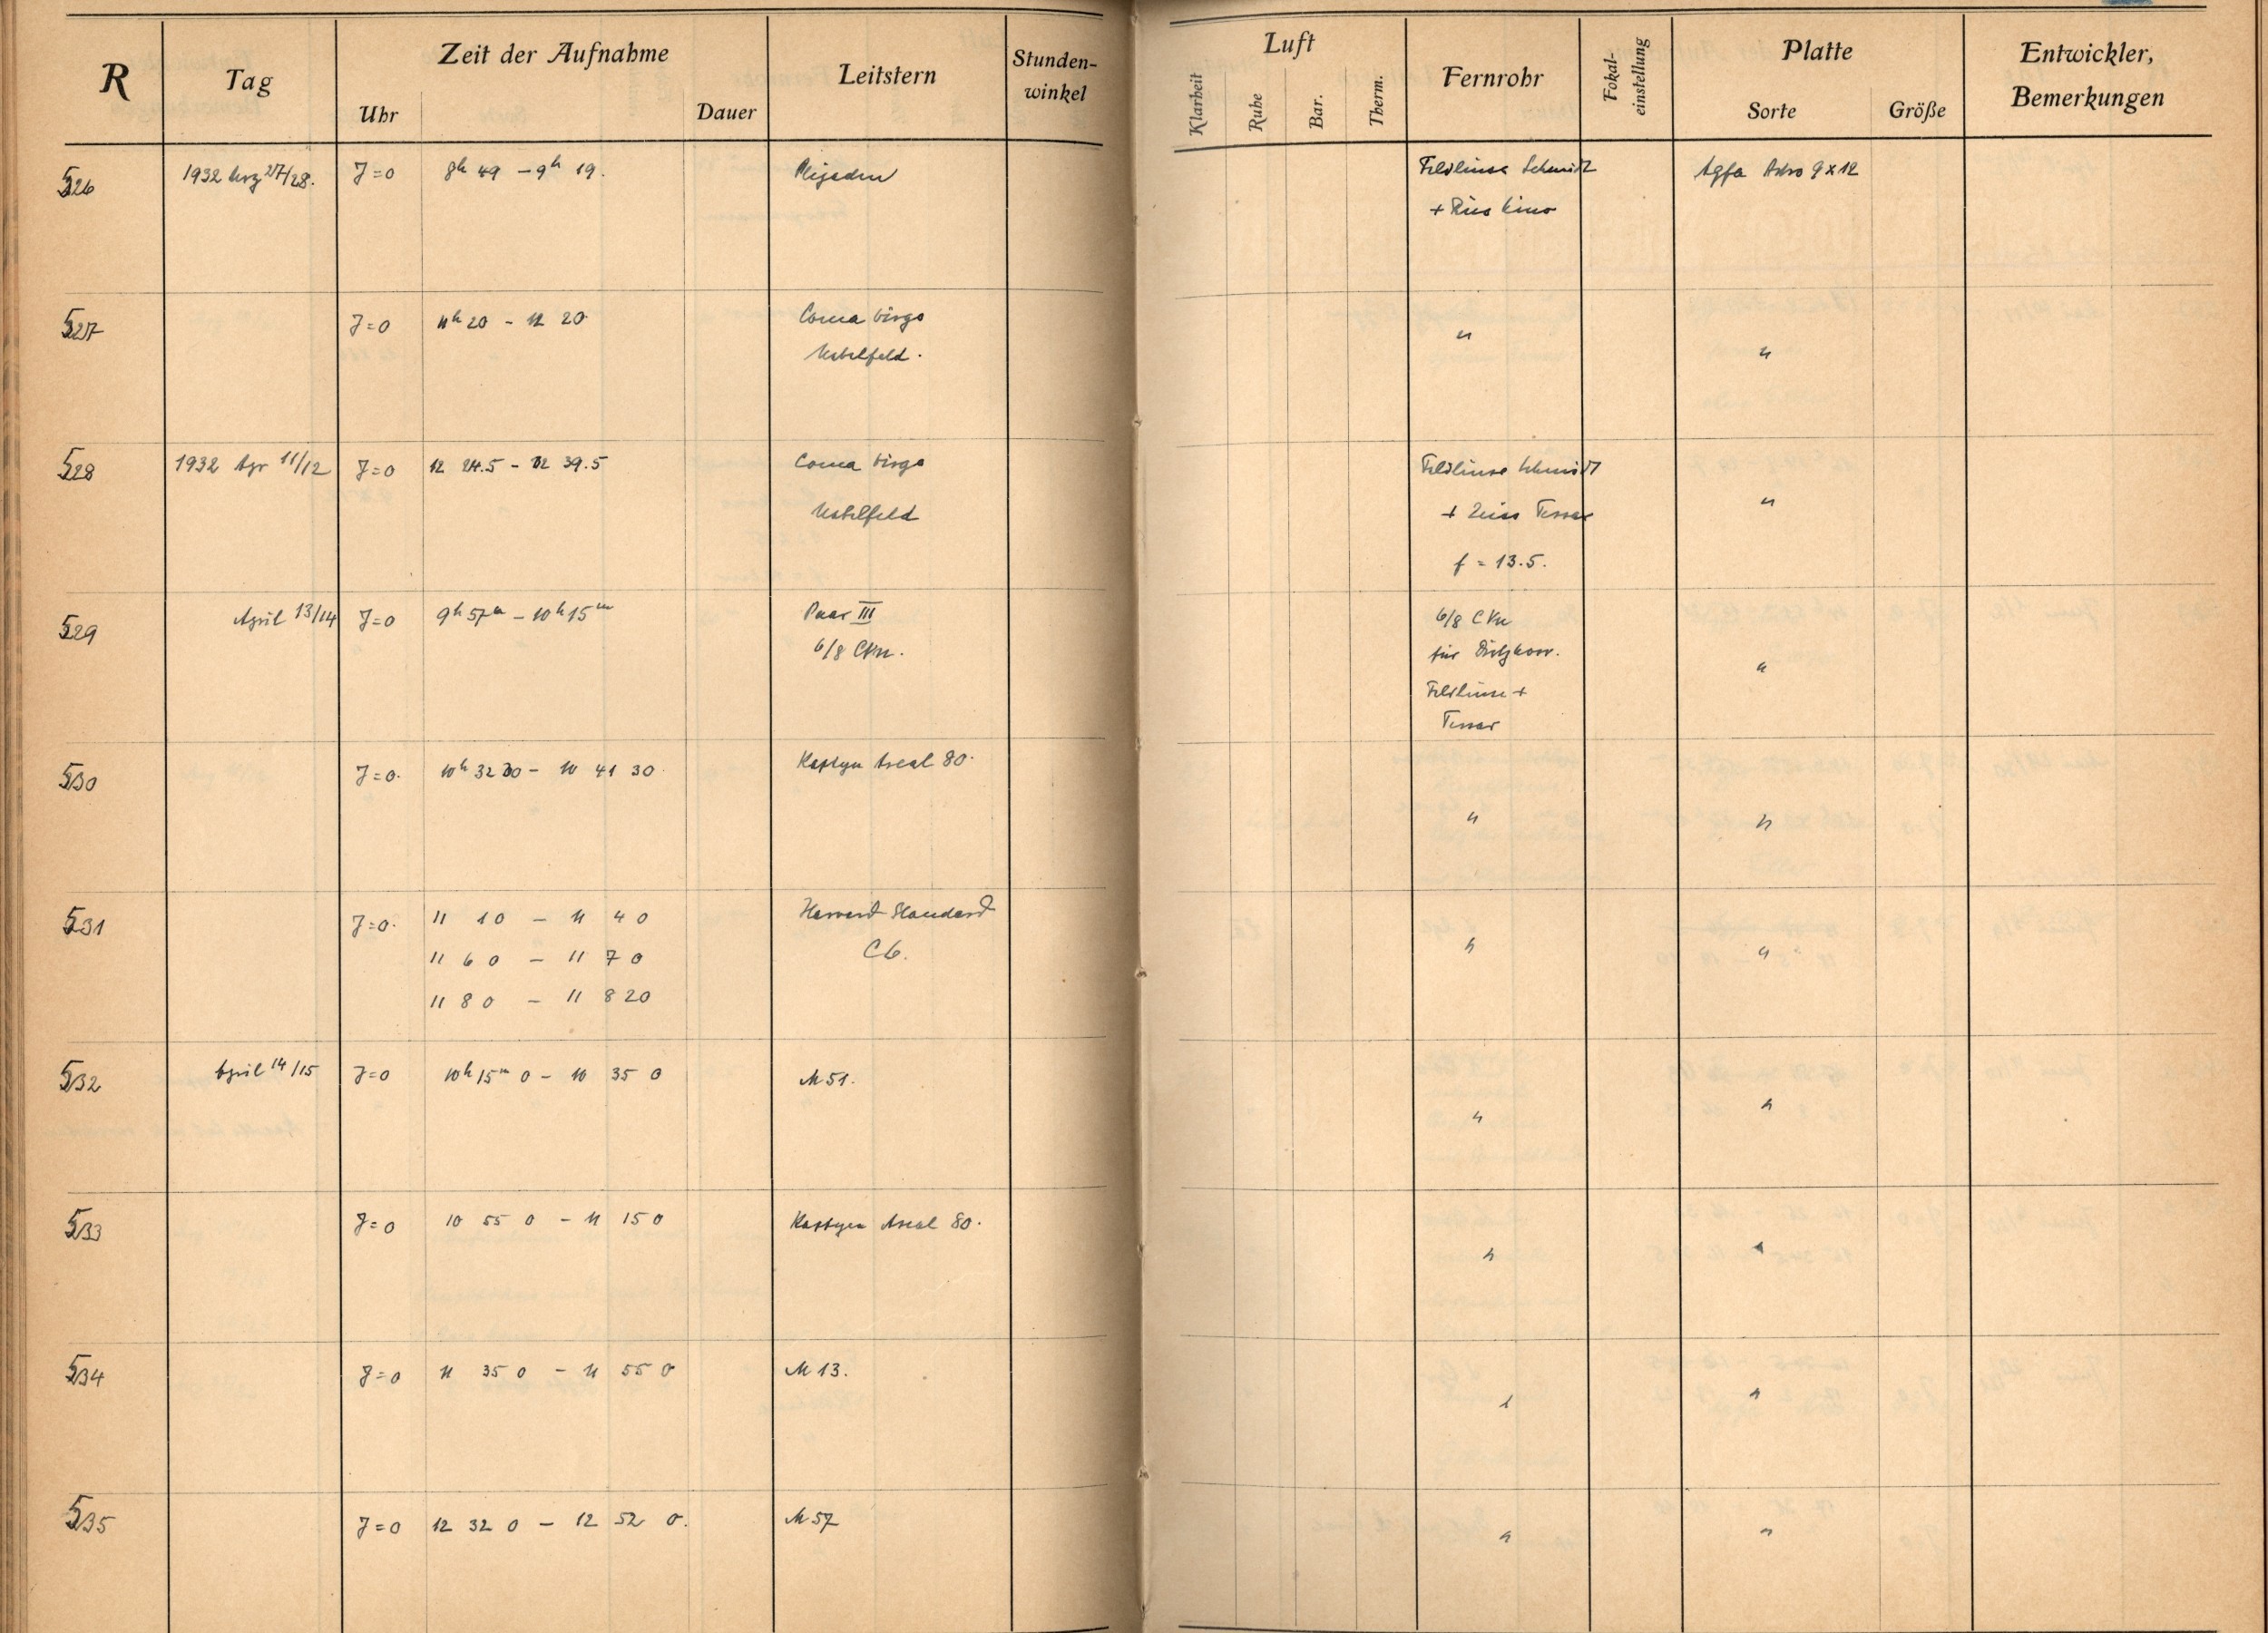 R Tag Zeit der Aufnahme Leitstern Stunden-winkel Luft Fernrohr Fokal-einstellung Platte Entwickler, Bemerkungen
Uhr Dauer Klarheit Ruhe Bar. Therm. Sorte Größe
526 1932 27/28. J=0 8h 49 – 9h 19. Plejaden Feldlinse Schmidt Agfa Astro 9x12
+ Kino
527 J=0 11h 20 – 12 20 Coma Virgo " "
Nebelfeld.
528 1932 Apr 11/12 J=0 12 24.5 – 12 39.5 Coma Virgo Feldlinse Schmidt "
Nebelfeld + Zeiss Tessar
f = 13.5.
529 April 13/14 J=0 9h 57m – 10h 15m Paar III 6/8 CVn "
6/8 CVn. für
Feldlinse +
Tessar
530 J=0. 10h 32 30 – 10 41 30 Kapteyn Areal 80. " "
531 J=0. 11 1 0 – 11 4 0 Harvard Standard " "
11 6 0 – 11 7 0 C6.
11 8 0 – 11 8 20
532 April 14/15 J=0 10h 15m 0 – 10 35 0 M 51. " "
533 J=0 10 55 0 – 11 15 0 Kapteyn Areal 80. " "
534 J=0 11 35 0 – 11 55 0 M 13. " "
535 J=0 12 32 0 – 12 52 0. M 57 " "